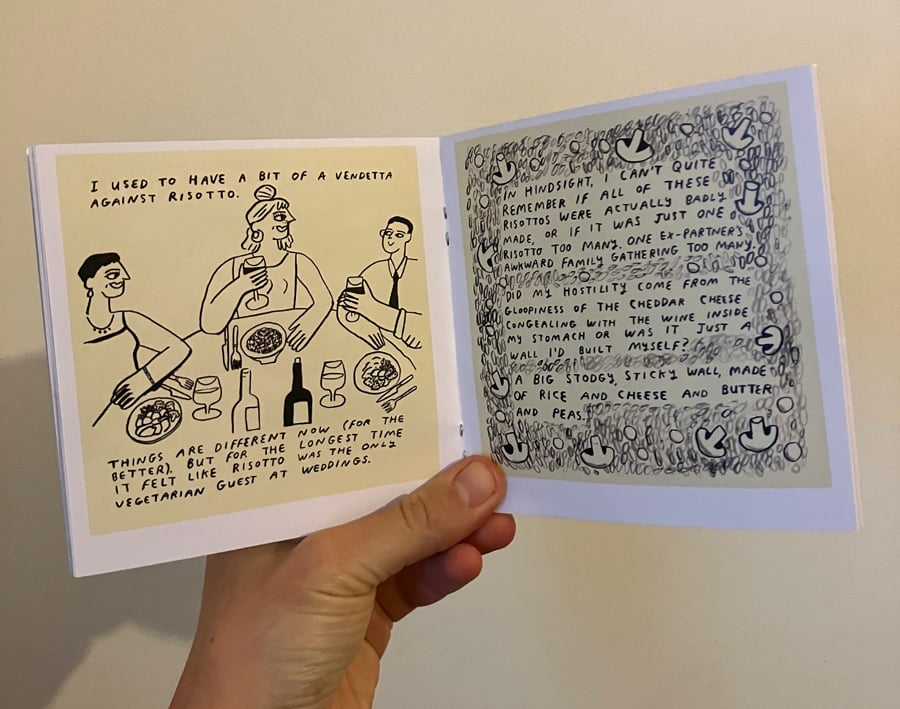 I USED TO HAVE A BIT OF A VENDETTA
AGAINST RISOTTO.
THINGS ARE DIFFERENT NOW (FOR THE
BETTER). BUT FOR THE LONGEST TIME
IT FELT LIKE RISOTTO WAS THE ONLY
VEGETARIAN GUEST AT WEDDINGS.
IN HINDSIGHT, I CAN'T QUITE
REMEMBER IF ALL OF THESE
RISOTTOS WERE ACTUALLY BADLY
MADE, OR IF IT WAS JUST ONE
RISOTTO TOO MANY. ONE EX-PARTNER'S
AWKWARD FAMILY GATHERING TOO MANY.
DID MY HOSTILITY COME FROM THE
GLOOPINESS OF THE CHEDDAR CHEESE
CONGEALING WITH THE WINE INSIDE
MY STOMACH OR WAS IT JUST A
WALL I'D BUILT MYSELF?
A BIG STODGY, STICKY WALL, MADE
OF RICE AND CHEESE AND BUTTER
AND PEAS.